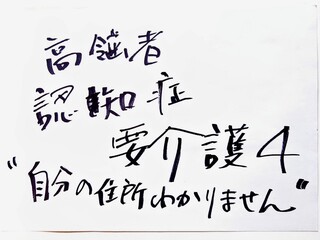 高齢者
認知症
要介護4
"自分の住所わかりません"